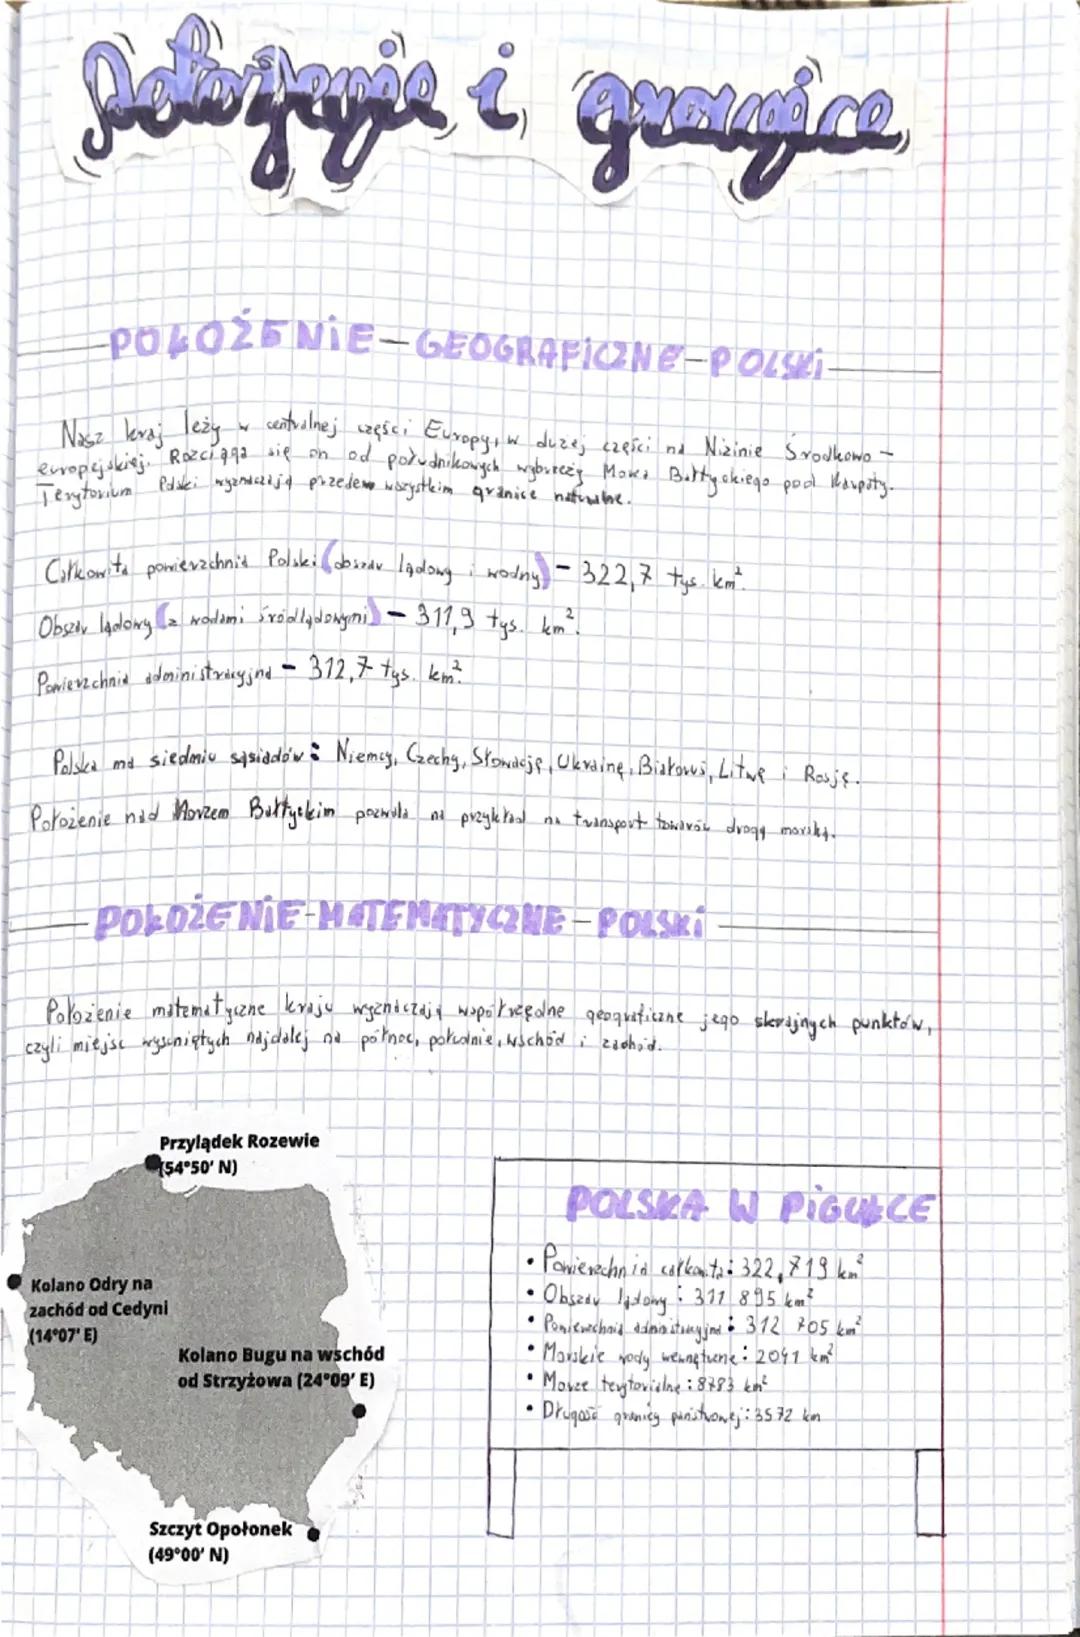 Położenie i granice
POŁOŻENIE-GEOGRAFICZNE-POLSKI
Nasz kraj leży w centralnej części Europy, w dużej części na Nizinie Środkowo-
europejskiej. Rozciąga się on od południkowych wybrzeży Morza Bałtyckiego pod Karpaty.
Terytorium Polski wyznaczają przedem wszystkim granice naturalne.
Całkowita powierzchnia Polski (obszar lądowy i wodny) - 322,7 tys. km².
Obszar lądowy (z wodami śródlądowymi) - 311,9 tys. km².
Powierzchnia administracyjna - 312,7 tys. km².
Polska ma siedmiu sąsiadów: Niemcy, Czechy, Słowację, Ukrainę, Białoruś, Litwę i Rosję.
Położenie nad Morzem Bałtyckim pozwala na przykład na transport towarów drogą morską.
POŁOŻENIE-MATEMATYCZNE-POLSKI
Położenie matematyczne kraju wyznaczają współrzędne geograficzne jego skrajnych punktów,
czyli miejsc wysuniętych najdalej na północ, południe, wschód i zachód.
Przylądek Rozewie
(54°50' N)
Kolano Odry na
zachód od Cedyni
(14°07' E)
Kolano Bugu na wschód
od Strzyżowa (24°09' E)
Szczyt Opołonek
(49°00' N)
POLSKA W PIGUŁCE
• Powierzchnia całkowita: 322,719 km²
• Obszar lądowy: 311 895 km²
• Powierzchnia administracyjna: 312 705 km²
• Morskie wody wewnętrzne: 2041 km²
• Morze terytorialne: 8783 km²
• Długość granicy państwowej: 3572 km